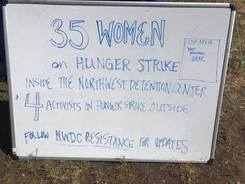 35 WOMEN
on HUNGER STRIKE
INSIDE THE NORTHWEST DETENTION CENTER
4 ACTIVISTS IN HUNGER STRIKE OUTSIDE
FOLLOW NWDC RESISTANCE FOR UPDATES